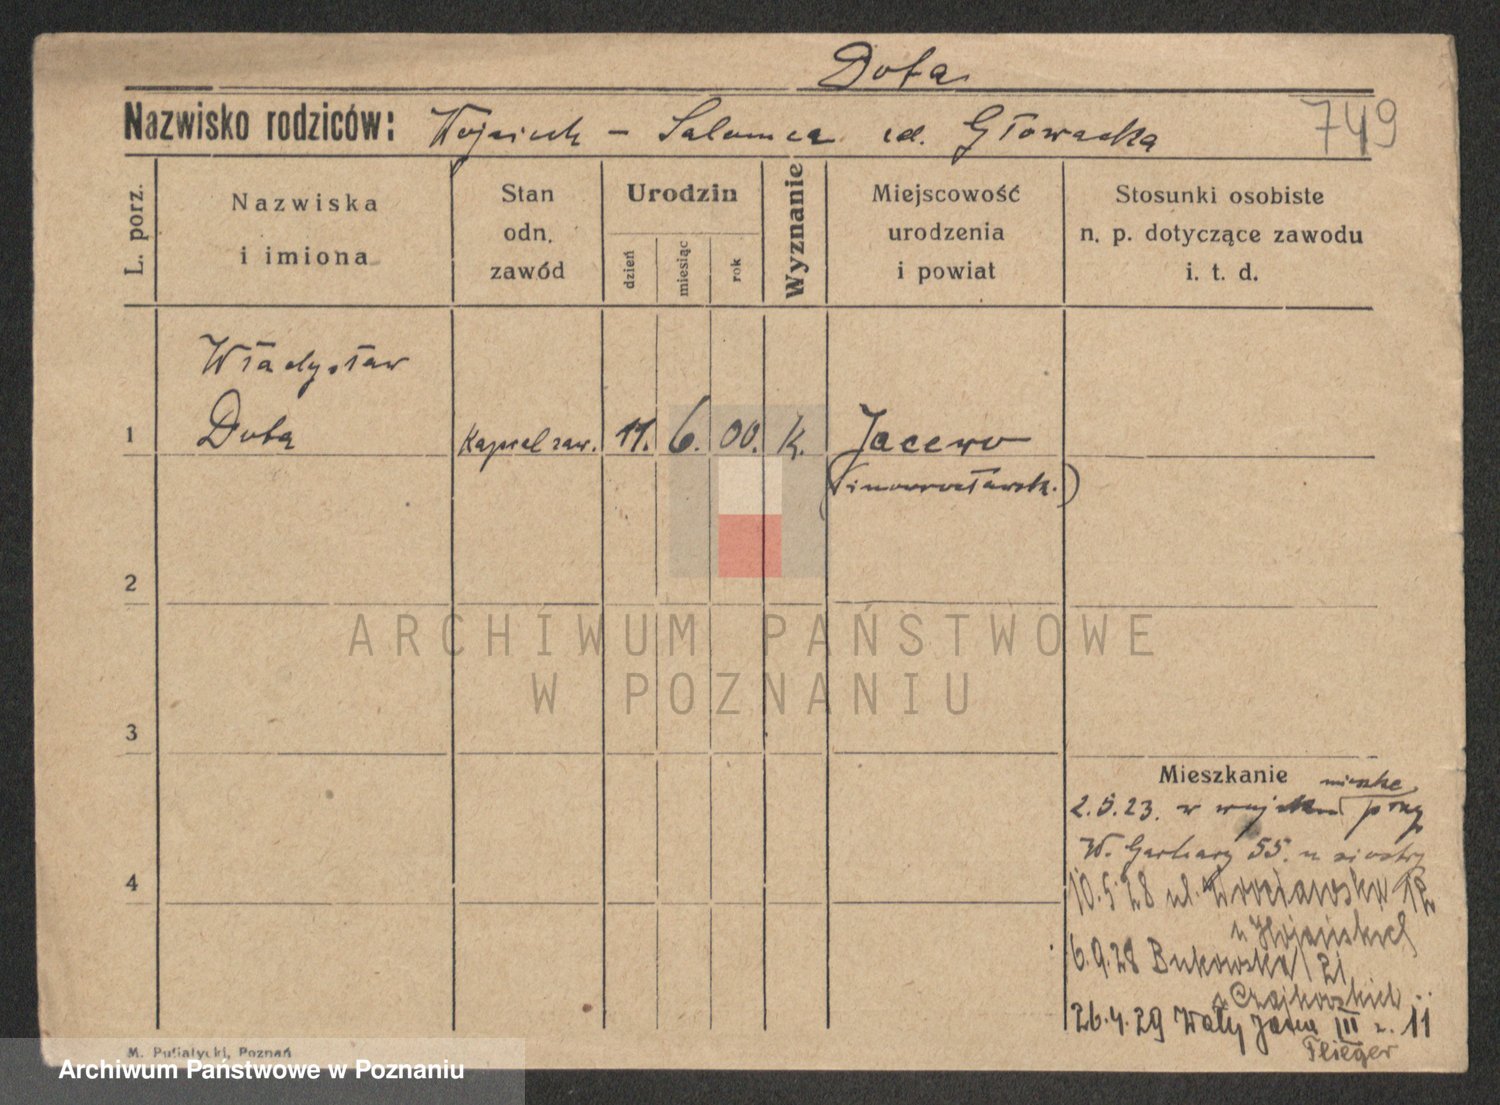 Dota
Nazwisko rodziców: Wojciech – Salomea ur. Głowacka
749
L. porz.
Nazwiska
i imiona
Stan
odn.
zawód
Urodzin
dzień
miesiąc
rok
Wyznanie
Miejscowość
urodzenia
i powiat
Stosunki osobiste
n. p. dotyczące zawodu
i. t. d.
Władysław
1 Dota kapral zaw. 11. 6. 00. k. Jacewo
(inowrocławsk.)
2
3
4
ARCHIWUM PAŃSTWOWE
W POZNANIU
Mieszkanie
mieszka
2.5.23. w wojsku przy
W. Garbary 55. u siostry
10.5.28 ul. Wrocławska
u
6.9.28 Bukowska 21
u Czajkowskich
26.4.29 Wały Jana III 11
Flieger
M. Putiatycki, Poznań
Archiwum Państwowe w Poznaniu